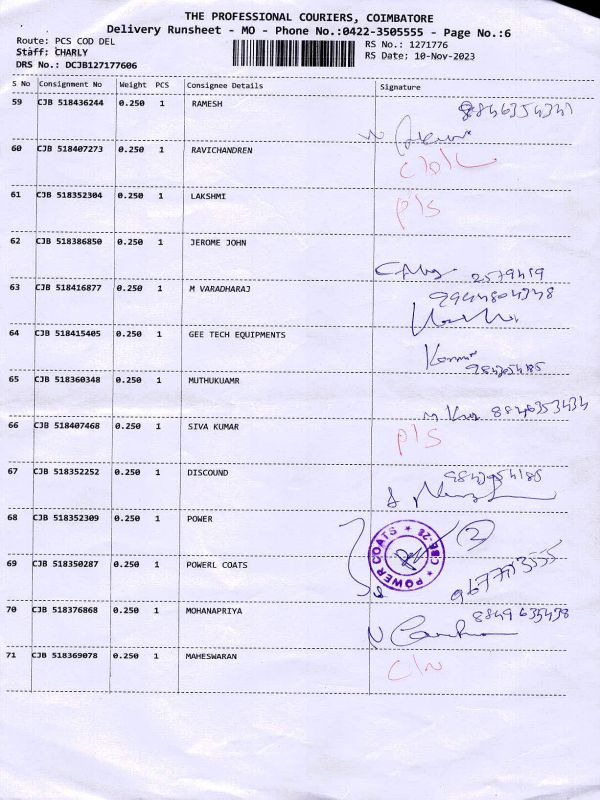 THE PROFESSIONAL COURIERS, COIMBATORE
Delivery Runsheet - MO - Phone No.:0422-3505555 - Page No.:6
Route: PCS COD DEL
RS No.: 1271776
Staff: CHARLY
RS Date: 10-Nov-2023
DRS No.: DCJB127177606
S No Consignment No Weight PCS Consignee Details Signature
59 CJB 518436244 0.250 1 RAMESH
60 CJB 518407273 0.250 1 RAVICHANDREN
61 CJB 518352304 0.250 1 LAKSHMI
p/s
62 CJB 518386850 0.250 1 JEROME JOHN
2579419
63 CJB 518416877 0.250 1 M VARADHARAJ
9944804348
64 CJB 518415405 0.250 1 GEE TECH EQUIPMENTS
65 CJB 518360348 0.250 1 MUTHUKUAMR
66 CJB 518407468 0.250 1 SIVA KUMAR
p/s
67 CJB 518352252 0.250 1 DISCOUND
68 CJB 518352309 0.250 1 POWER
POWER COATS * CBE-28 *
2
69 CJB 518350287 0.250 1 POWERL COATS
70 CJB 518376868 0.250 1 MOHANAPRIYA
71 CJB 518369078 0.250 1 MAHESWARAN